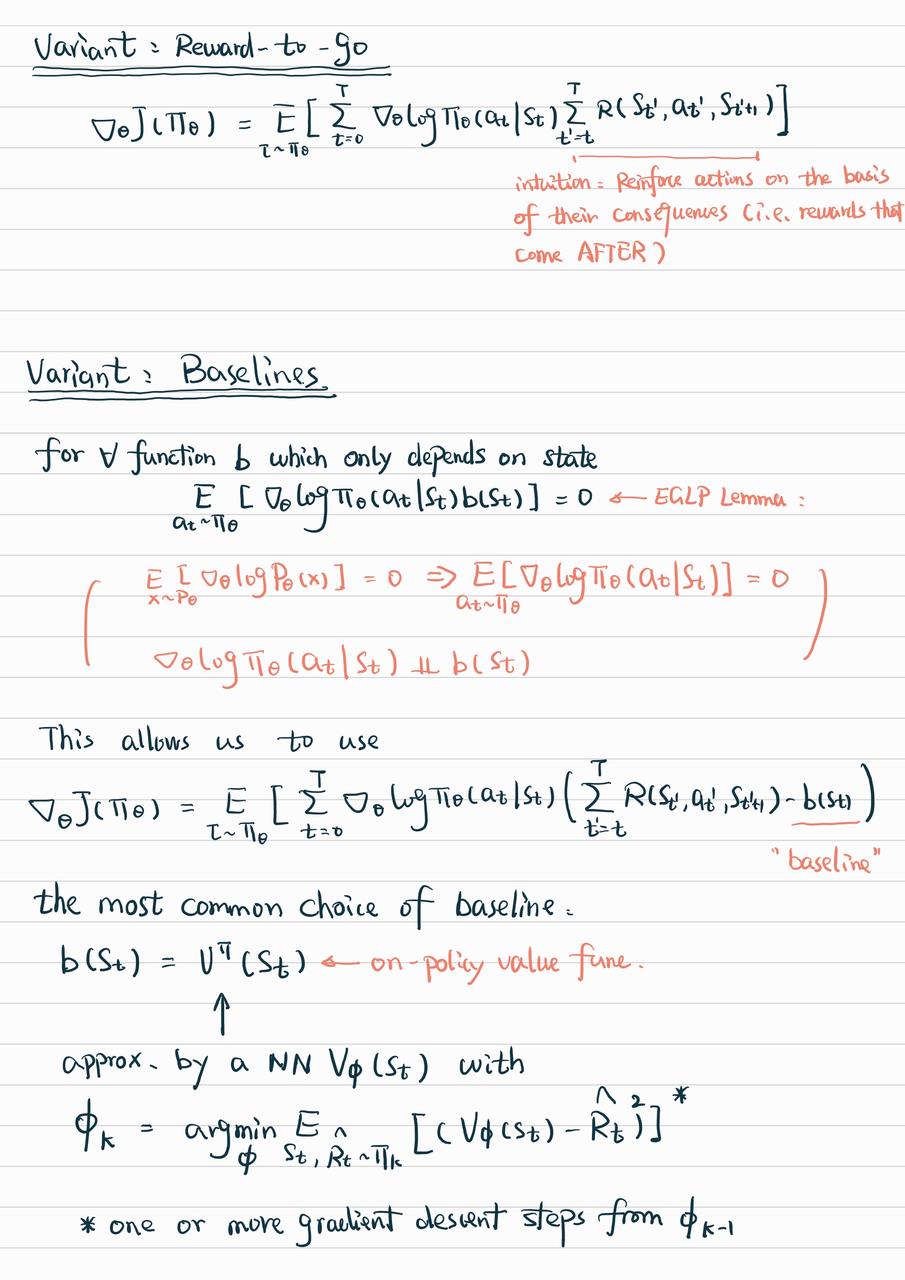 Variant : Reward-to-go
∇θJ(πθ) = E_{τ~πθ} [ Σ_{t=0}^{T} ∇θ log πθ(at|St) Σ_{t'=t}^{T} R(St', at', St'+1) ]
intuition : Reinforce actions on the basis
of their consequences (i.e. rewards that
come AFTER)
Variant : Baselines.
for ∀ function b which only depends on state
E_{at~πθ} [ ∇θ log πθ(at|St) b(St) ] = 0 ← EGLP Lemma :
( E_{x~Pθ} [ ∇θ log Pθ(x) ] = 0 ⇒ E_{at~πθ} [ ∇θ log πθ(at|St) ] = 0 )
∇θ log πθ(at|St) ⫫ b(St)
This allows us to use
∇θJ(πθ) = E_{τ~πθ} [ Σ_{t=0}^{T} ∇θ log πθ(at|St) ( Σ_{t'=t}^{T} R(St', at', St'+1) - b(St) )
"baseline"
the most common choice of baseline :
b(St) = V^π(St) ← on-policy value func.
↑
approx. by a NN Vφ(St) with
φk = argmin_φ E_{St, R̂t ~ πk} [ (Vφ(St) - R̂t)² ] *
* one or more gradient descent steps from φk-1